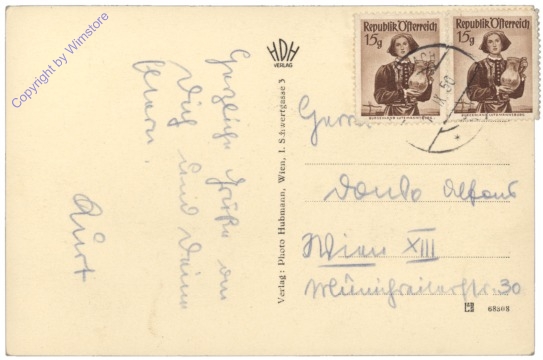 Copyright by Wimstore
Herzliche Grüße an
Dich und Deine
Eltern.
Kurt
HDH
VERLAG
Verlag: Photo Hubmann, Wien, I. Schwertgasse 3
Republik Österreich
15g
BURGENLAND LUTZMANNSBURG
Republik Österreich
15g
BURGENLAND LUTZMANNSBURG
50
Herrn
Alfons
Wien XIII
30
68208